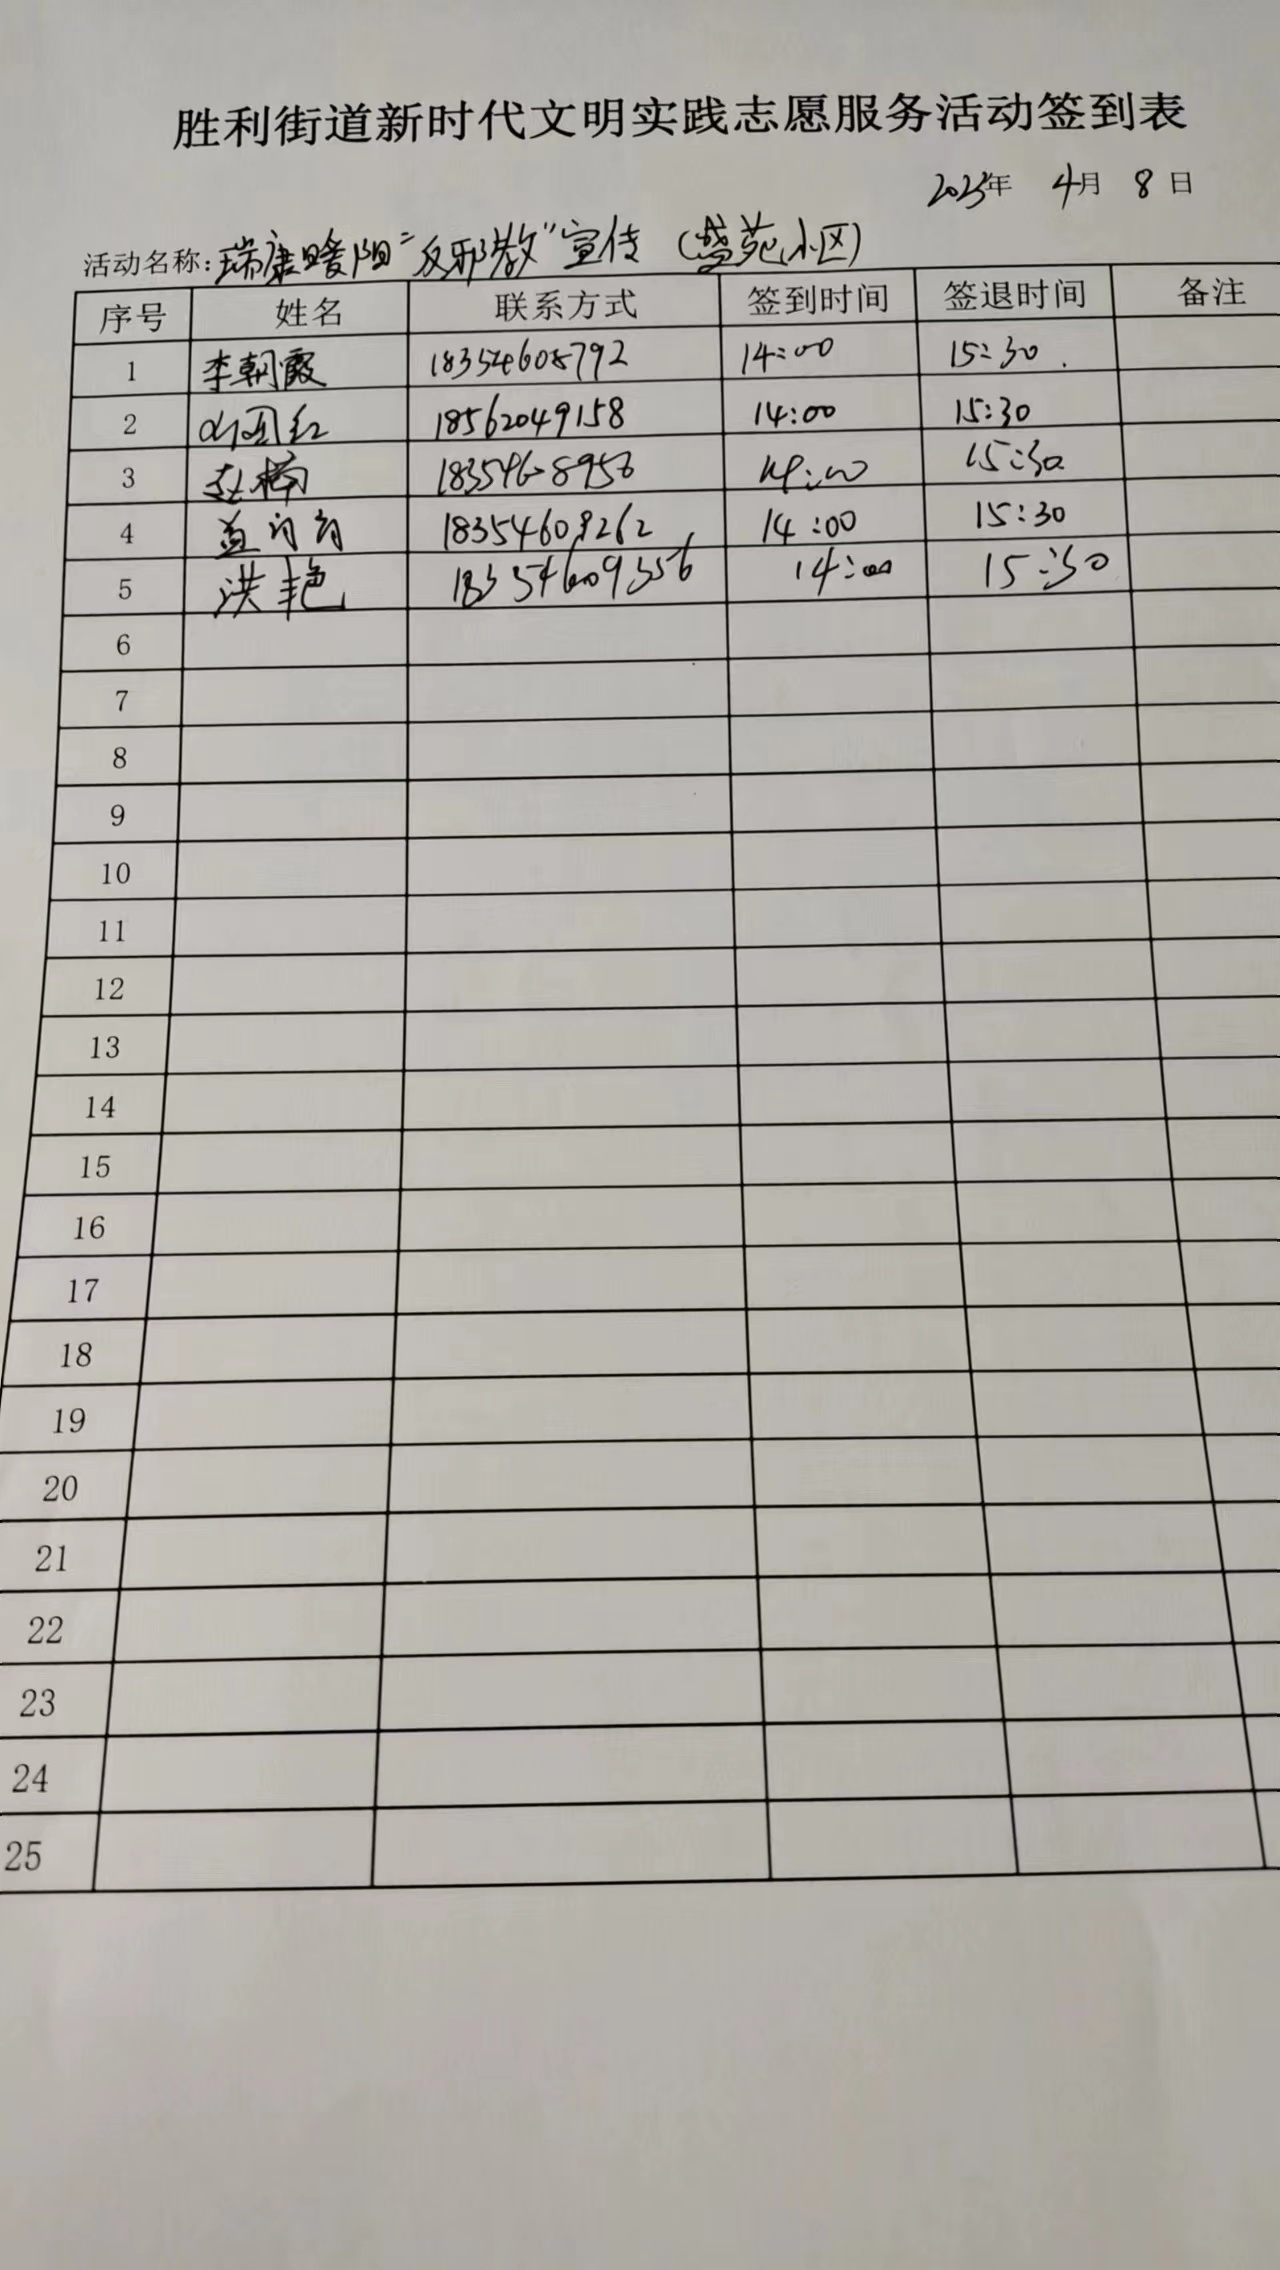 胜利街道新时代文明实践志愿服务活动签到表
2025年 4月 8日
活动名称:瑞康暖阳“反邪教”宣传(盛苑小区)
序号 姓名 联系方式 签到时间 签退时间 备注
1 李朝霞 18354605792 14:00 15:30
2 18562049158 14:00 15:30
3 赵楠 14:00 15:30
4 18354609262 14:00 15:30
5 洪艳 18354609356 14:00 15:30
6
7
8
9
10
11
12
13
14
15
16
17
18
19
20
21
22
23
24
25